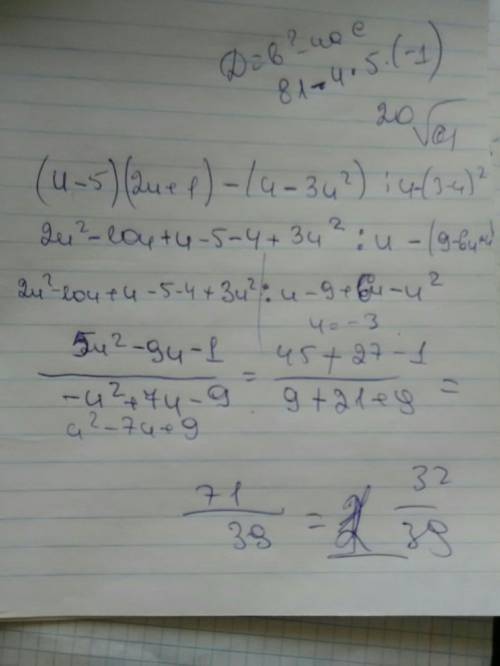 D=b²-4ac
81-4·5·(-1)
20√61
(u-5)(2u+1)-(4-3u²):u-(3-u)²
2u²-10u+u-5-4+3u²:u-(9-6u+u²)
2u²-10u+u-5-4+3u²:u-9+6u-u²
u=-3
5u²-9u-1 / -u²+7u-9 = 45+27-1 / 9+21+9 =
u²-7u+9
71/39 = 1 32/39